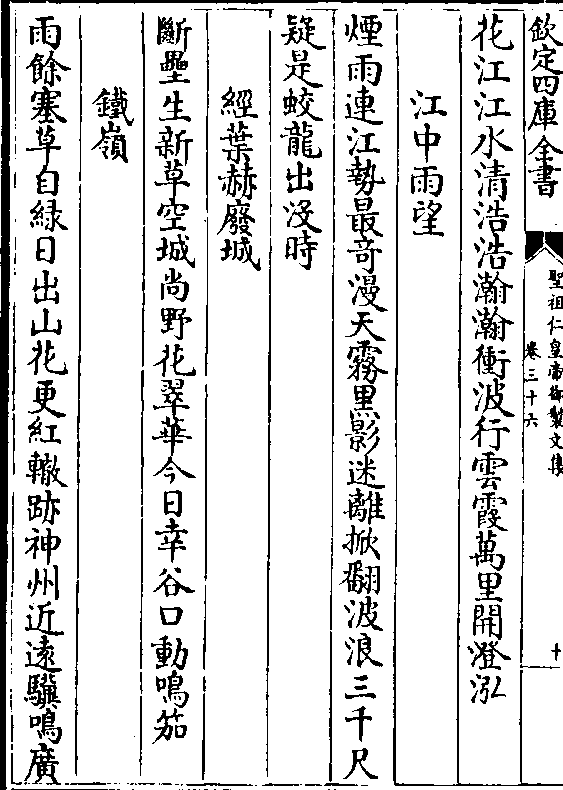 欽定四庫全書
聖祖仁皇帝御製文集
卷三十六
十
花江江水清浩浩瀚瀚衝波行雲霞萬里開澄泓
江中雨望
煙雨連江勢最奇漫天霧黑影迷離掀翻波浪三千尺
疑是蛟龍出没時
經葉赫廢城
斷壘生新草空城尚野花翠華今日幸谷口動鳴笳
鐵嶺
雨餘塞草自緑日出山花更紅轍跡神州近遠驥鳴廣